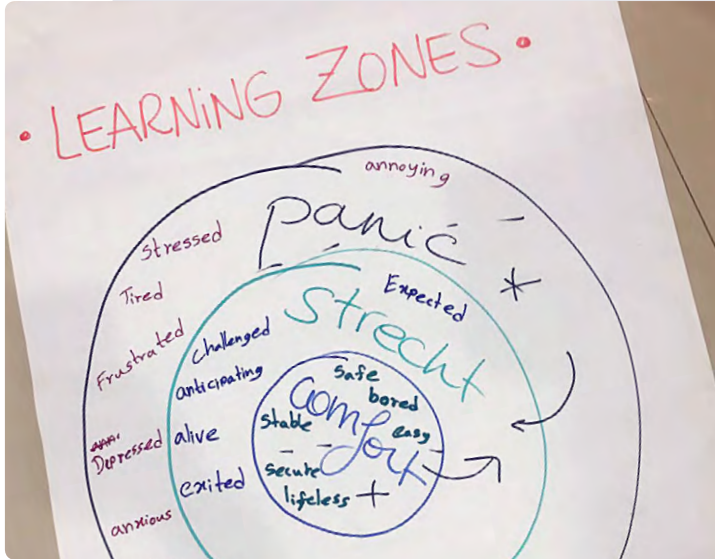 • LEARNiNG ZONES •
annoying
panic
Stressed
Tired
Frustrated
Depressed
anxious
Expected
Strecht
challenged
anticipating
alive
exited
Safe
bored
Comfort
Stable
easy
secure
lifeless +